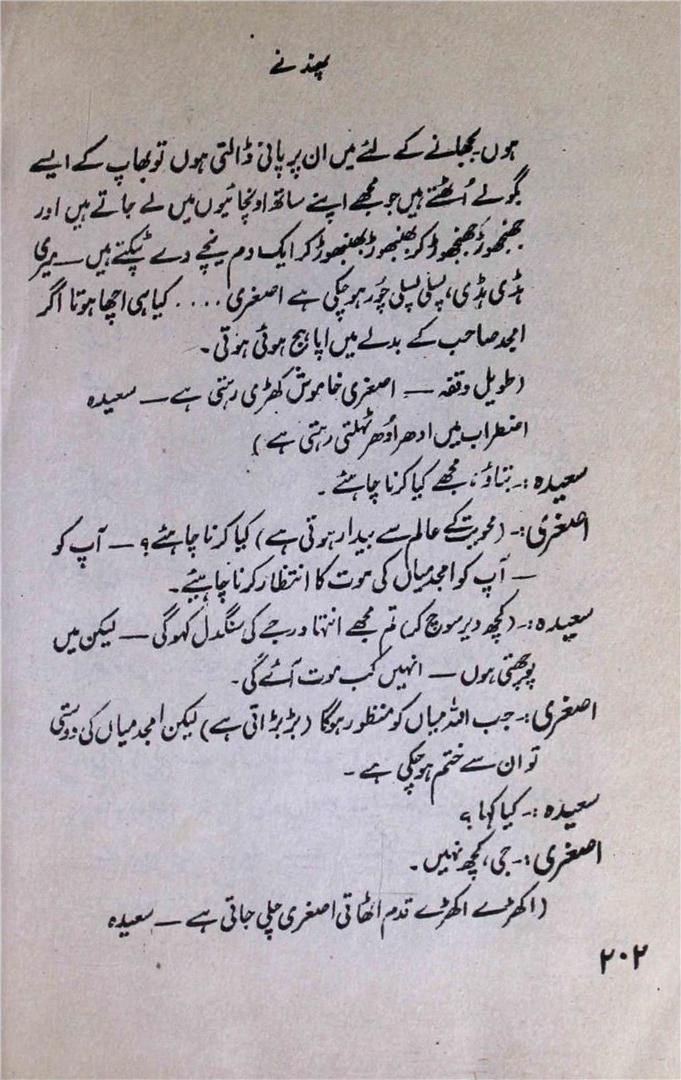 پھندنے
ہوں بجھانے کے لئے میں ان پر پانی ڈالتی ہوں تو بھاپ کے ایسے
بگولے اُٹھتے ہیں جو مجھے اپنے ساتھ اونچائیوں میں لے جاتے ہیں اور
جھنجھوڑ جھنجھوڑ کر بھنبھوڑ بھنبھوڑ کر ایک دم نیچے دے پٹکتے ہیں — میری
ہڈی ہڈی، پسلی پسلی چُور ہو چکی ہے اصغری .... کیا ہی اچھا ہوتا اگر
امجد صاحب کے بدلے میں اپاہج ہوئی ہوتی۔
(طویل وقفہ — اصغری خاموش کھڑی رہتی ہے — سعیدہ
اضطراب میں ادھر اُدھر ٹہلتی رہتی ہے)
سعیدہ :۔ بتاؤ، مجھے کیا کرنا چاہئے۔
اصغری :۔ (محویت کے عالم سے بیدار ہوتی ہے) کیا کرنا چاہئے؟ — آپ کو
— آپ کو امجد میاں کی موت کا انتظار کرنا چاہیئے۔
سعیدہ :۔ (کچھ دیر سوچ کر) تم مجھے انتہا درجے کی سنگدل کہوگی — لیکن میں
پوچھتی ہوں — انہیں کب موت آئے گی۔
اصغری :۔ جب اللہ میاں کو منظور ہوگا (بڑبڑاتی ہے) لیکن امجد میاں کی دوستی
تو ان سے ختم ہو چکی ہے۔
سعیدہ :۔ کیا کہا؟
اصغری :۔ جی، کچھ نہیں۔
(اکھڑے اکھڑے قدم اٹھاتی اصغری چلی جاتی ہے — سعیدہ
۲۰۲